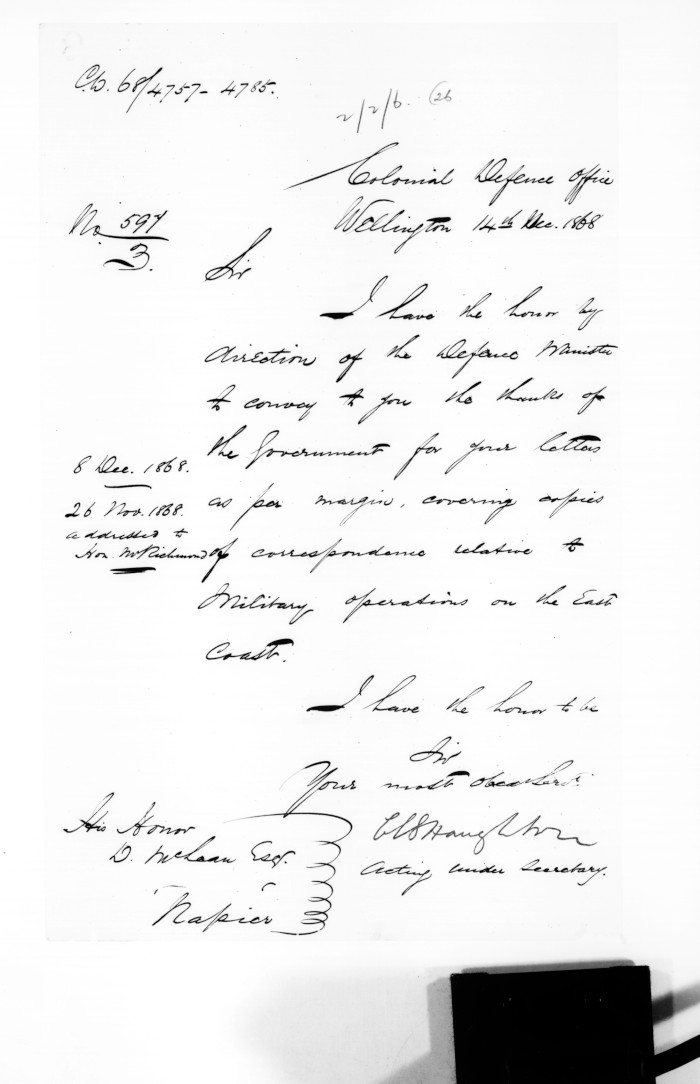 C.D. 68/4757 - 4785.
2/2/6. (26
Colonial Defence Office
Wellington 14th Dec. 1868
No. 597/3.
Sir
I have the honor by
direction of the Defence Minister
to convey to you the thanks of
the Government for your letters
8 Dec. 1868.
as per margin, covering copies
26 Nov. 1868.
addressed to
Hon. Mr Richmond
of correspondence relative to
Military operations on the East
Coast.
I have the honor to be
Sir
Your most obedt Servt.
His Honor
D. McLean Esqr.
"Napier"
Haughton
Acting Under Secretary.